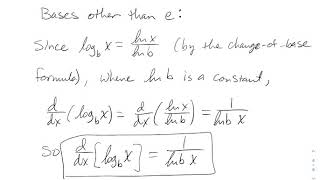 Bases other than e:
Since log_b x = ln x / ln b (by the change-of-base
formula), where ln b is a constant,
d/dx (log_b x) = d/dx (ln x / ln b) = 1 / ln b x
So d/dx [log_b x] = 1 / ln b x